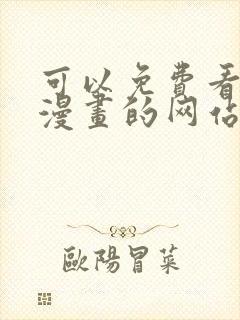 可以免费看
漫畫的网站
歐陽冒菜